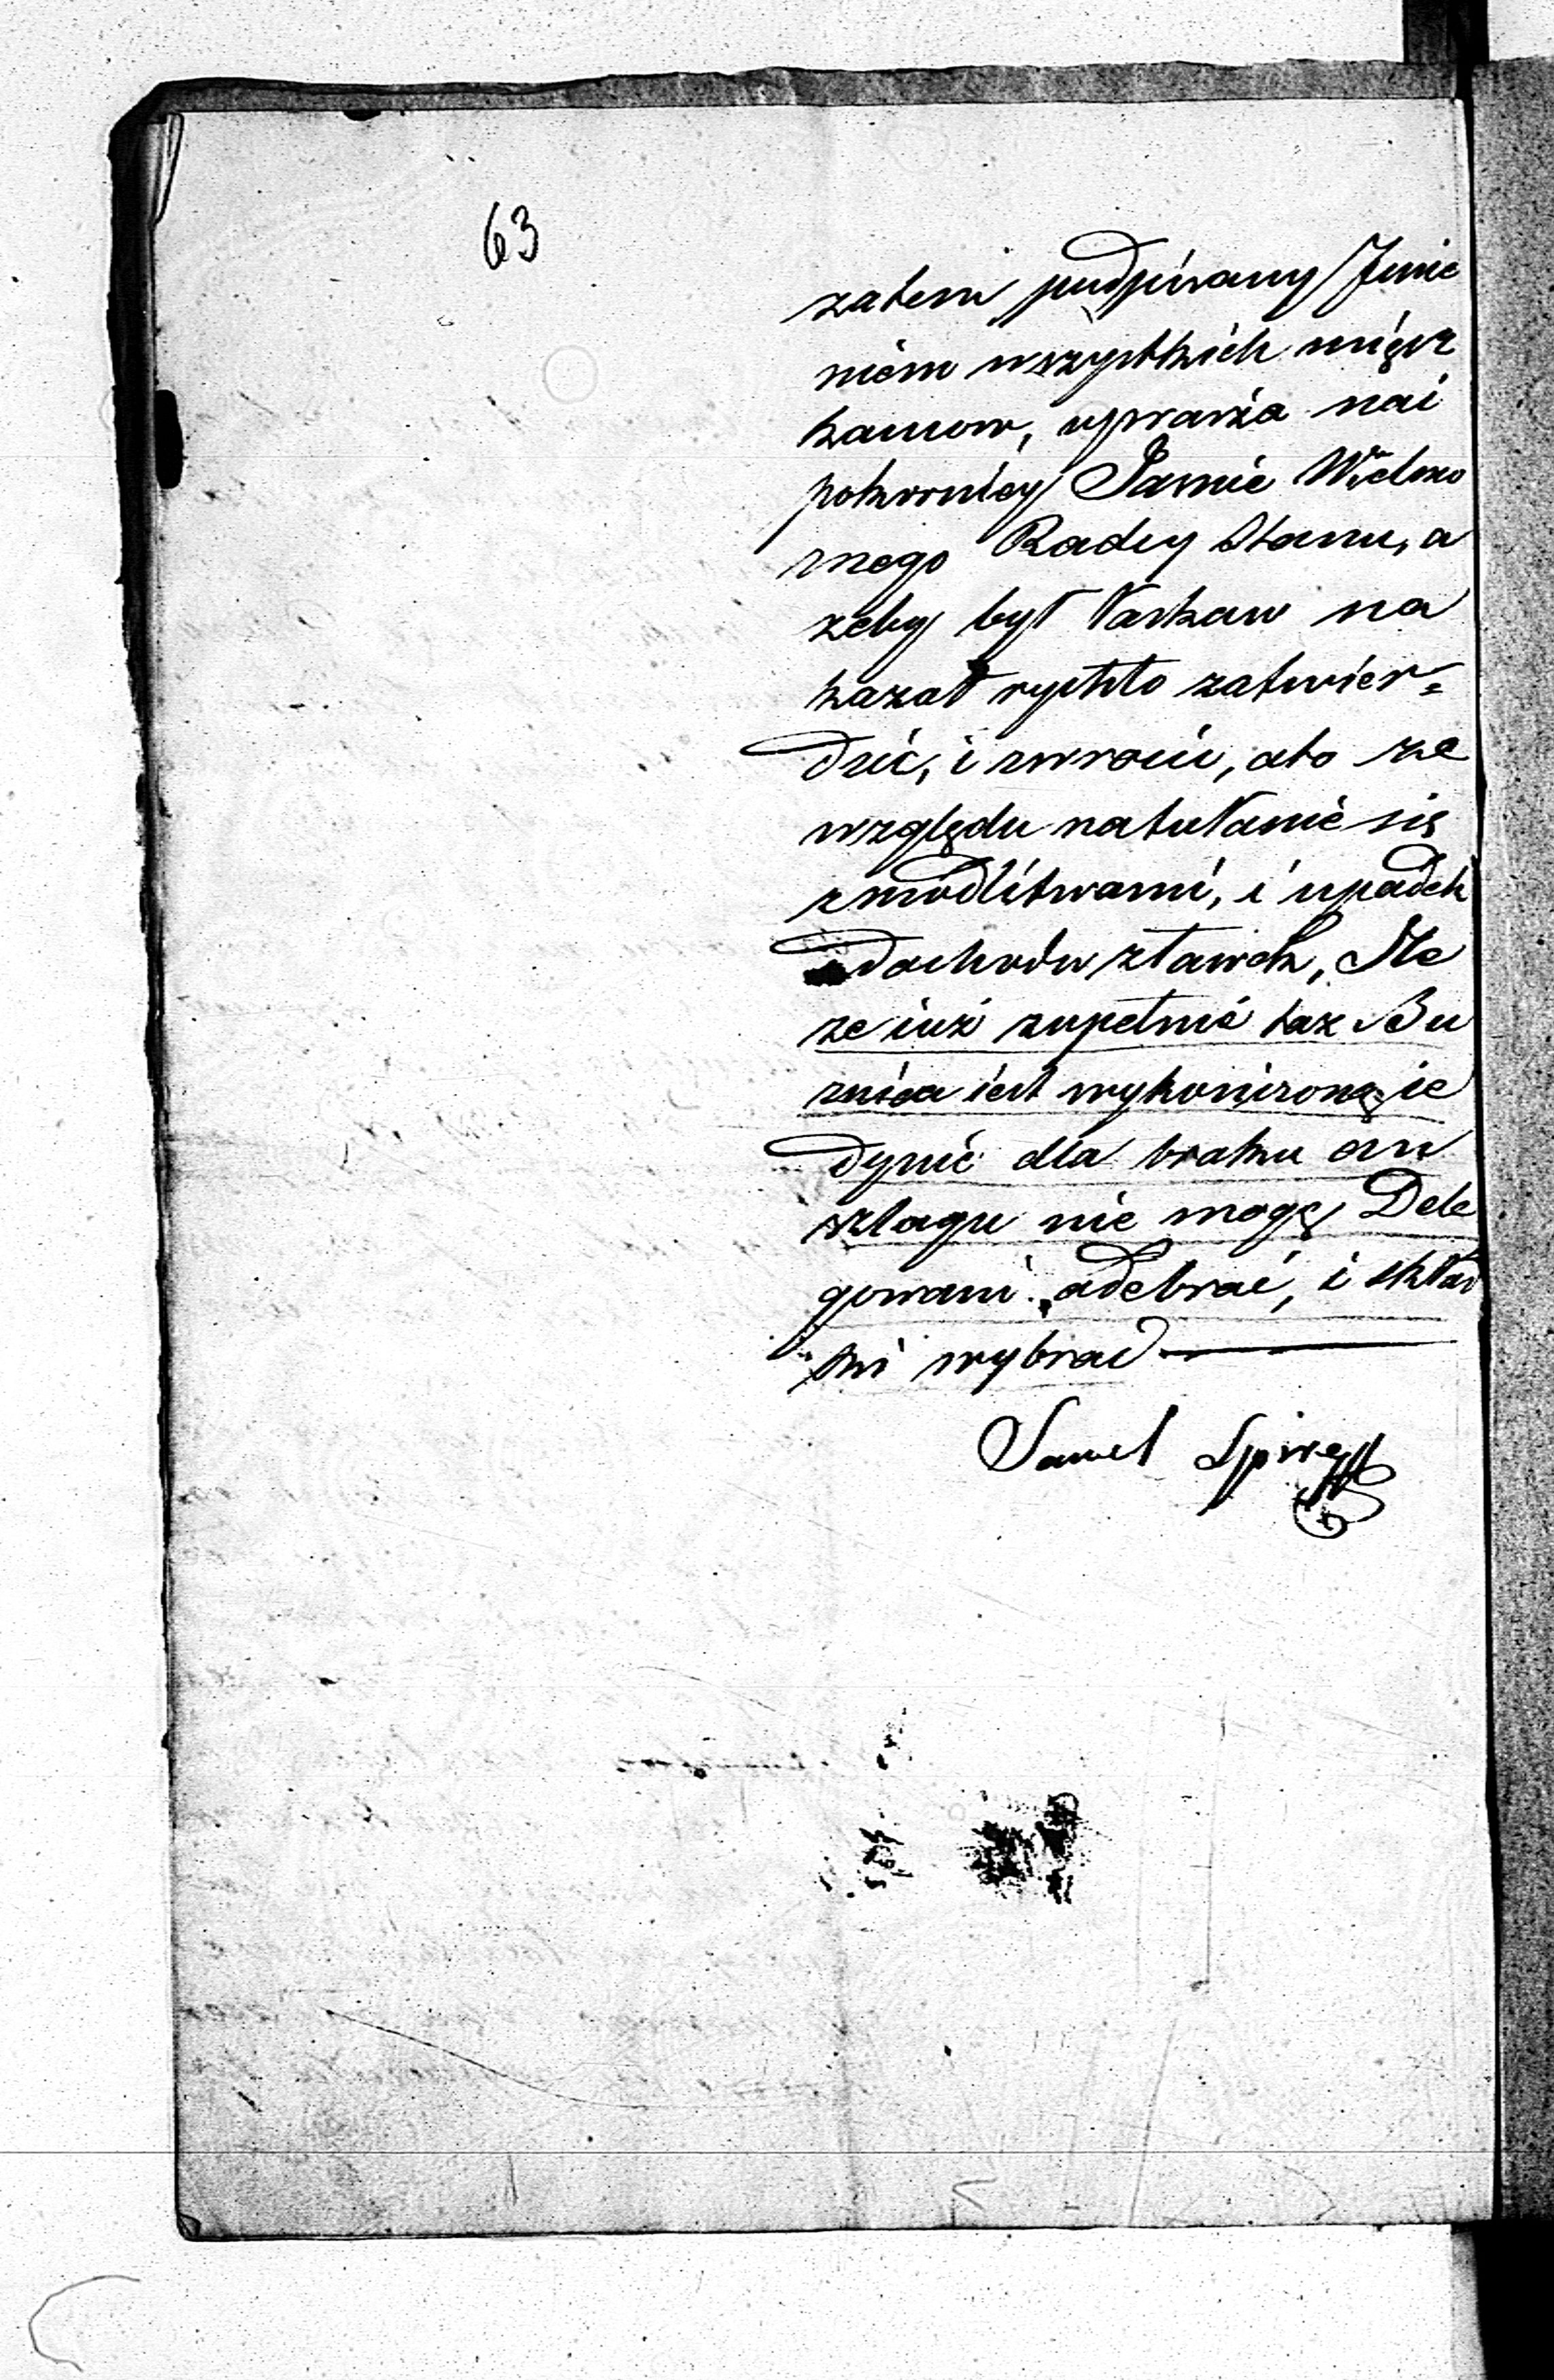 63
zatem podpisany Jmie
niem wszystkich miesz
kancow, uprasza nai
pokorniey Jasnie Wielmo
znego Radcy Stanu, a
zeby był łaskaw na
kazał rychło zatwier=
dzić, i zwrócić, a to ze
względu na tułanie się
z modlitwami, i upadek
dochodu z ławek, Ile
ze iuż zupełnie taz Bu
znica iest wykonczona, ie
dynie dla braku an
szlagu nie mogę Dele
gowani odebrać, i skład
ki wybrać